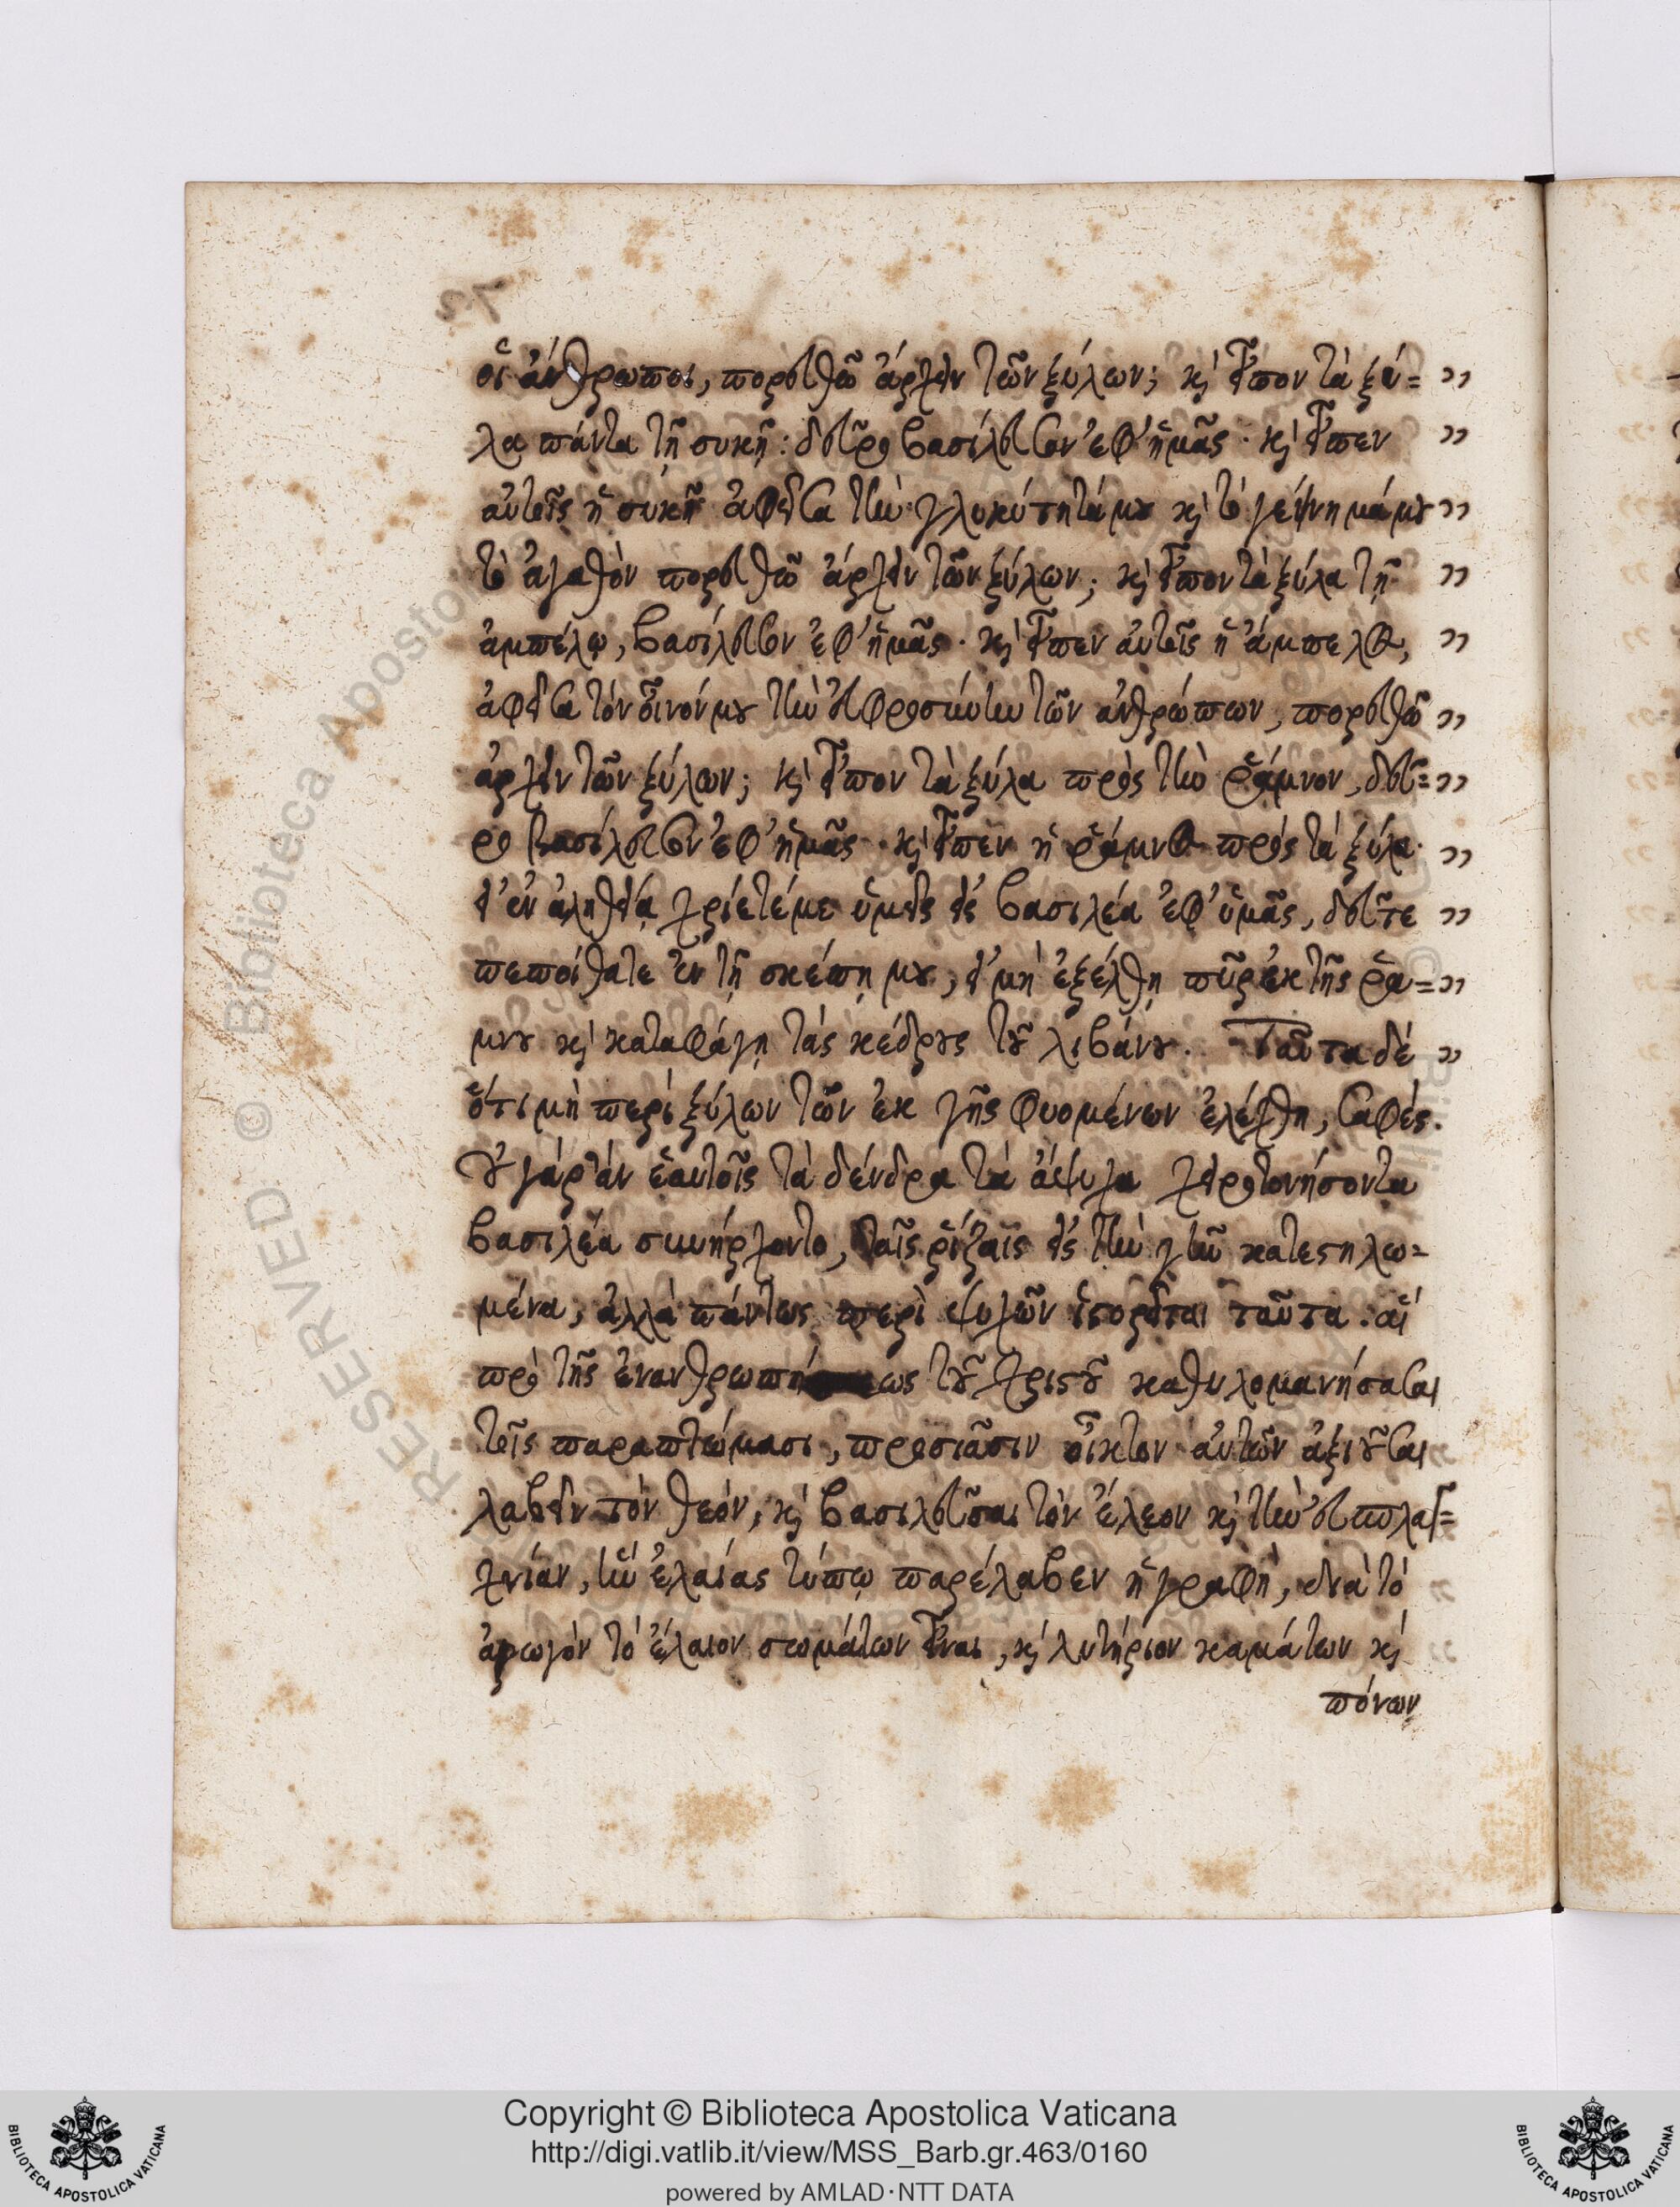 οἱ ἄνθρωποι, πορευθῶ ἄρχειν τῶν ξύλων; καὶ εἶπον τὰ ξύ=
λα πάντα τῇ συκῇ: δεῦρο βασίλευσον ἐφ' ἡμᾶς· καὶ εἶπεν
αὐτοῖς ἡ συκῆ ἀφεῖσα τὴν γλυκύτητά μου καὶ τὸ γέννημά μου
τὸ ἀγαθὸν πορευθῶ ἄρχειν τῶν ξύλων; καὶ εἶπον τὰ ξύλα τῇ
ἀμπέλῳ, βασίλευσον ἐφ' ἡμᾶς· καὶ εἶπεν αὐτοῖς ἡ ἄμπελος,
ἀφεῖσα τὸν οἶνόν μου τὴν εὐφροσύνην τῶν ἀνθρώπων, πορευθῶ
ἄρχειν τῶν ξύλων; καὶ εἶπον τὰ ξύλα πρὸς τὴν ῥάμνον, δεῦ=
ρο βασίλευσον ἐφ' ἡμᾶς· καὶ εἶπεν ἡ ῥάμνος πρὸς τὰ ξύλα·
εἰ ἐν ἀληθείᾳ χρίετέ με ὑμεῖς εἰς βασιλέα ἐφ' ὑμᾶς, δεῦτε
πεποίθατε ἐν τῇ σκέπῃ μου, εἰ μὴ ἐξέλθῃ πῦρ ἐκ τῆς ῥά=
μνου καὶ καταφάγῃ τὰς κέδρους τοῦ λιβάνου. Ταῦτα δὲ
ὅτι μὴ περὶ ξύλων τῶν ἐκ γῆς φυομένων ἐλέχθη, σαφές.
οὐ γὰρ ἂν ἑαυτοῖς τὰ δένδρα τὰ ἄψυχα χειροτονήσοντα
βασιλέα συνήρχοντο, ταῖς ῥίζαις εἰς τὴν γῆν κατεστηλω=
μένα, ἀλλὰ πάντως περὶ ψυχῶν ἱστορεῖται ταῦτα: αἳ
πρὸ τῆς ἐνανθρωπήσεως τοῦ Χριστοῦ καθυλομανήσασαι
τοῖς παραπτώμασι, προσιᾶσιν οἶκτον αὐτῶν ἀξιοῦσαι
λαβεῖν τὸν θεόν, καὶ βασιλεῦσαι τὸν ἔλεον καὶ τὴν εὐσπλαγ=
χνίαν, ἣν ἐλαίας τύπῳ παρέλαβεν ἡ γραφή, διὰ τὸ
ἀρωγὸν τὸ ἔλαιον σωμάτων εἶναι, καὶ λυτήριον καμάτων καὶ
πόνων
Copyright © Biblioteca Apostolica Vaticana
http://digi.vatlib.it/view/MSS_Barb.gr.463/0160
powered by AMLAD·NTT DATA
BIBLIOTECA APOSTOLICA VATICANA
BIBLIOTECA APOSTOLICA VATICANA